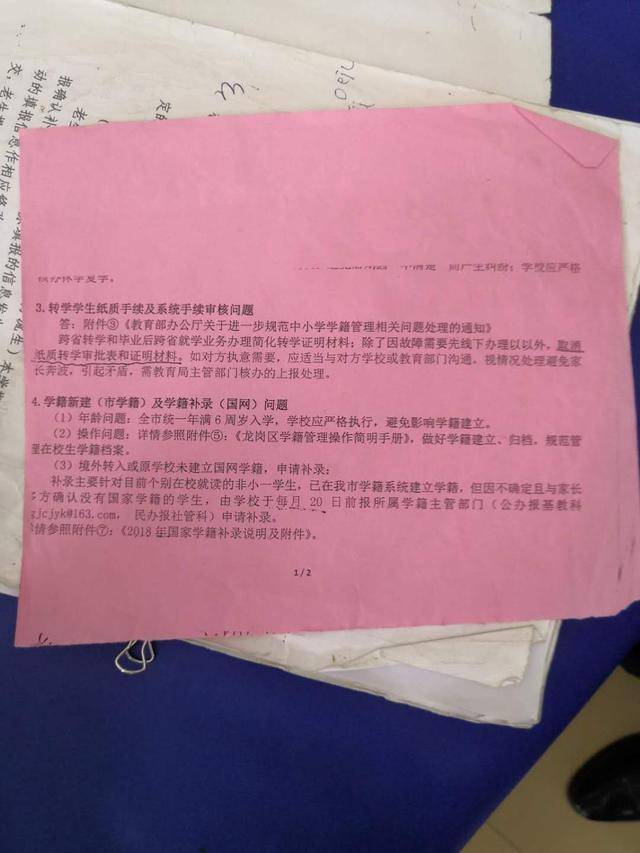 而产生纠纷；学校应严格
核办休学复学。
3.转学学生纸质手续及系统手续审核问题
答：附件③《教育部办公厅关于进一步规范中小学学籍管理相关问题处理的通知》
跨省转学和毕业后跨省就学业务办理简化转学证明材料；除了因故障需要先线下办理以以外，取消
纸质转学审批表和证明材料。如对方执意需要，应适当与对方学校或教育部门沟通，视情况处理避免家
长奔波，引起矛盾，需教育局主管部门核办的上报处理。
4.学籍新建（市学籍）及学籍补录（国网）问题
（1）年龄问题：全市统一年满6周岁入学，学校应严格执行，避免影响学籍建立。
（2）操作问题：详情参照附件⑤：《龙岗区学籍管理操作简明手册》，做好学籍建立、归档，规范管
理在校生学籍档案。
（3）境外转入或原学校未建立国网学籍，申请补录；
补录主要针对目前个别在校就读的非小一学生，已在我市学籍系统建立学籍，但因不确定且与家长
多方确认没有国家学籍的学生，由学校于每月20日前报所属学籍主管部门（公办报基教科
gjcjyk@163.com，民办报社管科）申请补录。
详情参照附件⑦：《2018年国家学籍补录说明及附件》。
1/2